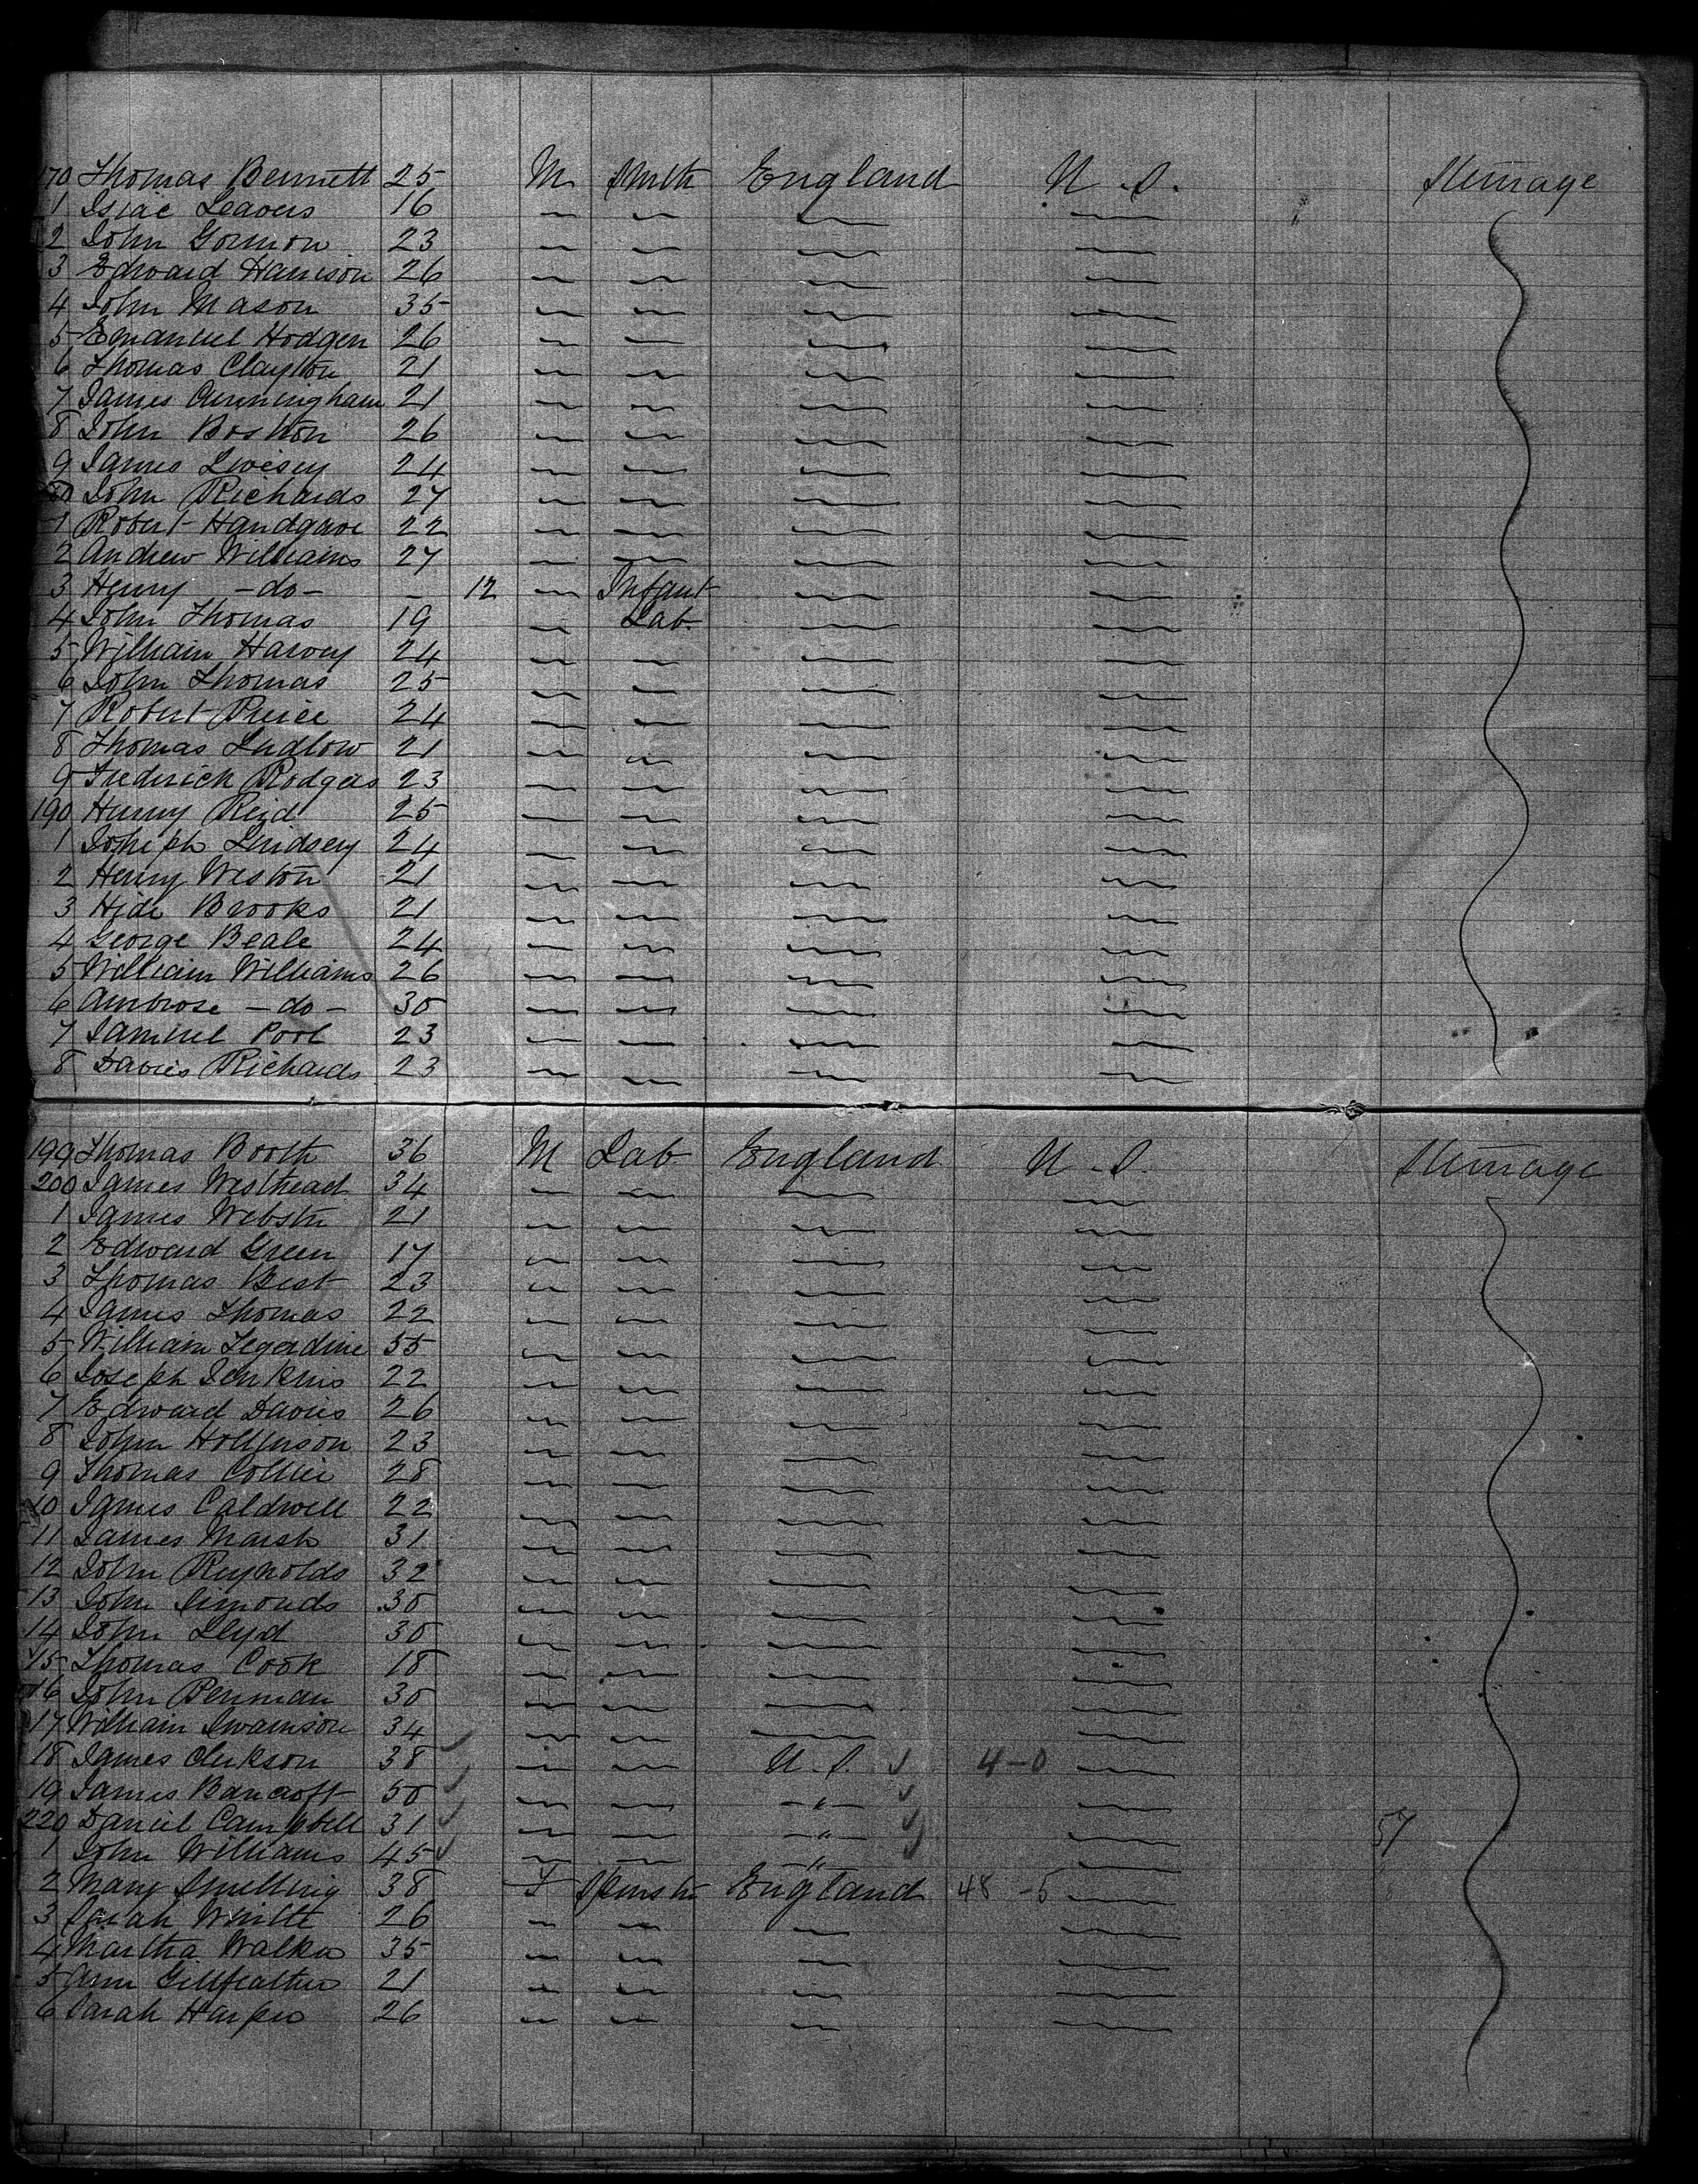 170 Thomas Bennett 25 M Smith England U.S. Steerage
1 Isiac Leavers 16 " " " "
2 John Gormon 23 " " " "
3 Edward Harrison 26 " " " "
4 John Mason 35 " " " "
5 Emanuel Hodgen 26 " " " "
6 Thomas Clayton 21 " " " "
7 James Cunningham 21 " " " "
8 John Boston 26 " " " "
9 James Livesey 24 " " " "
180 John Richards 27 " " " "
1 Robert Handgave 22 " " " "
2 Andrew Williams 27 " " " "
3 Henry -do- - 12 " Infant " "
4 John Thomas 19 " Lab. " "
5 William Harvey 24 " " " "
6 John Thomas 25 " " " "
7 Robert Preice 24 " " " "
8 Thomas Ludlow 21 " " " "
9 Frederick Rodgers 23 " " " "
190 Henry Reid 25 " " " "
1 Joseph Lindsey 24 " " " "
2 Henry Weston 21 " " " "
3 Hide Brooks 21 " " " "
4 George Beale 24 " " " "
5 William Williams 26 " " " "
6 Ambrose -do- 30 " " " "
7 Samuel Pool 23 " " " "
8 Davies Richards 23 " " " "
199 Thomas Booth 36 M Lab. England U.S. Steerage
200 James Westhead 34 " " " "
1 James Webster 21 " " " "
2 Edward Green 17 " " " "
3 Thomas Best 23 " " " "
4 James Thomas 22 " " " "
5 William 55 " " " "
6 Joseph Jenkins 22 " " " "
7 Edward Davies 26 " " " "
8 John 23 " " " "
9 Thomas Collier 28 " " " "
10 James Caldwell 22 " " " "
11 James Marsh 31 " " " "
12 John Reynolds 32 " " " "
13 John Simonds 30 " " " "
14 John Lloyd 30 " " " "
15 Thomas Cook 18 " " " "
16 John Penman 30 " " " "
17 William Swainson 34 " " " "
18 James Clerkson 38 " " U.S. 4-0 "
19 James Bancroft 50 " " " "
220 Daniel Campbell 31 " " " " 57
1 John Williams 45 " " " "
2 Mary Snelling 38 F Spinster England 48-5 "
3 Sarah 26 " " " "
4 Martha Walker 35 " " " "
5 Ann Gillfeather 21 " " " "
6 Sarah Harper 26 " " " "